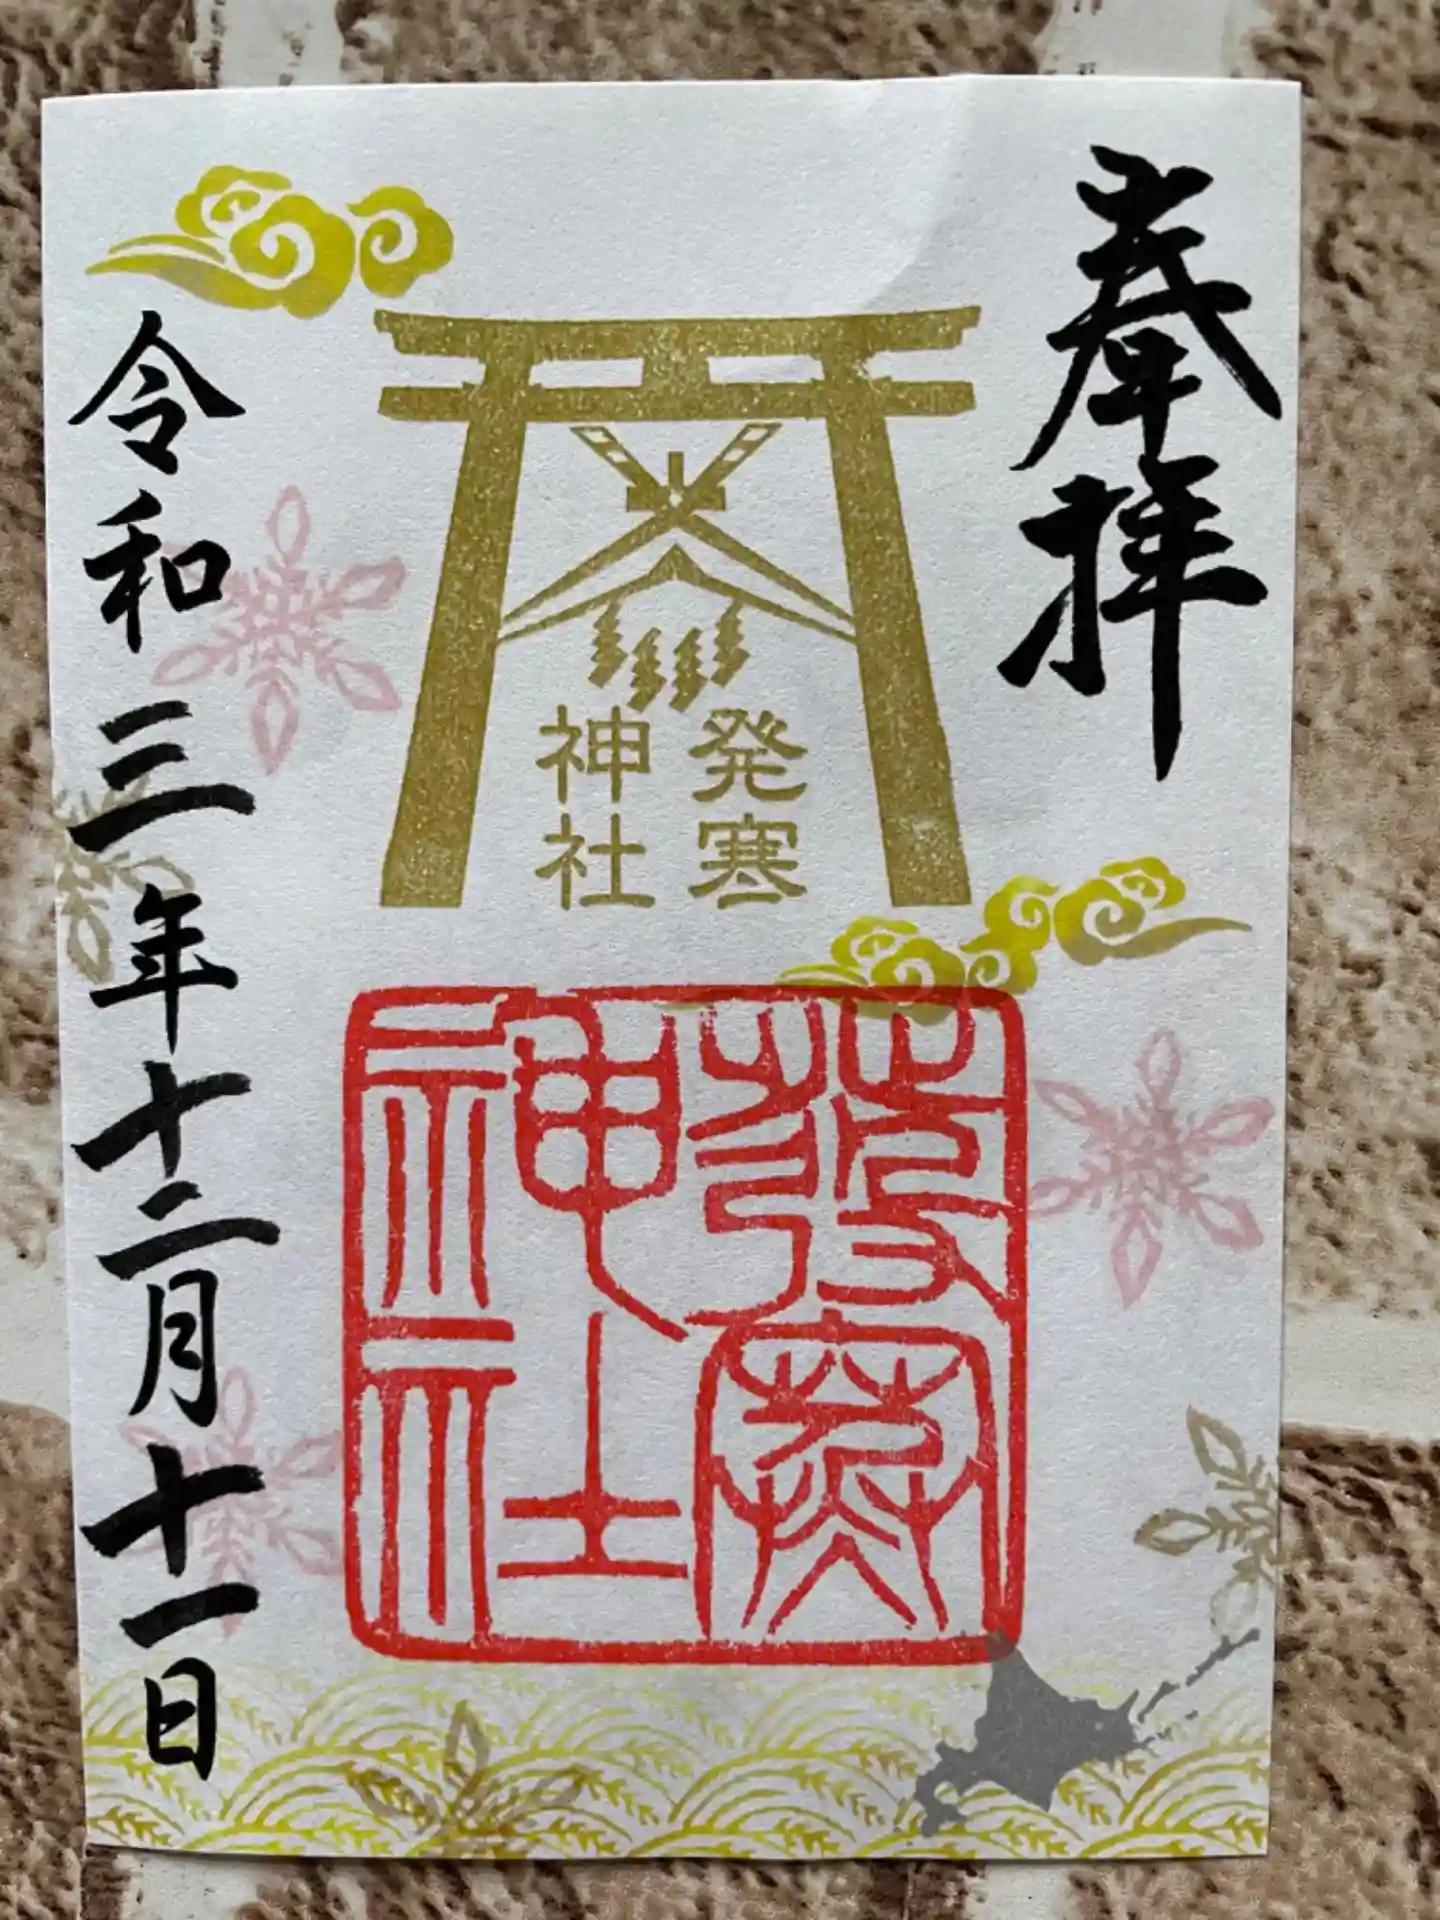 奉拝
発寒
神社
發寒
神社
令和三年十二月十一日